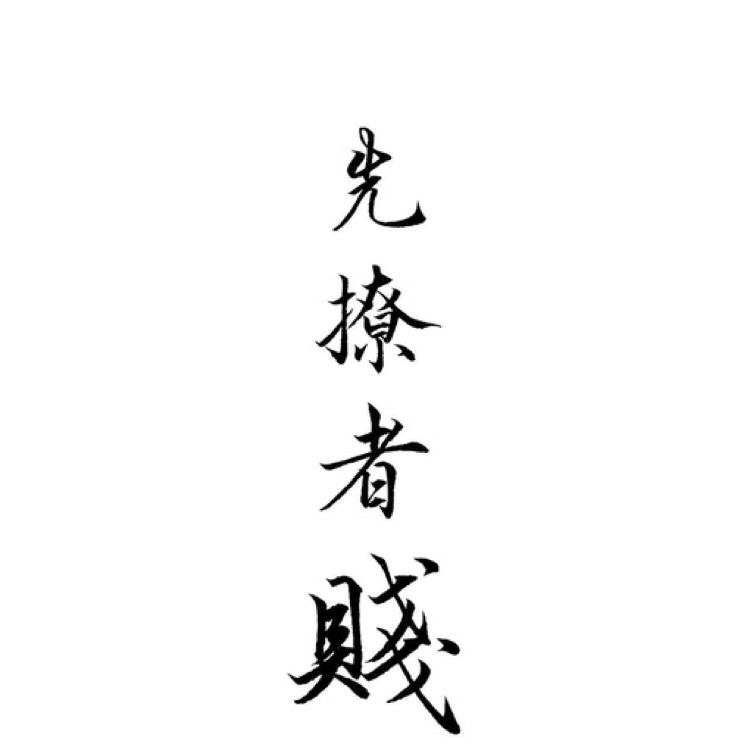 先撩者賤